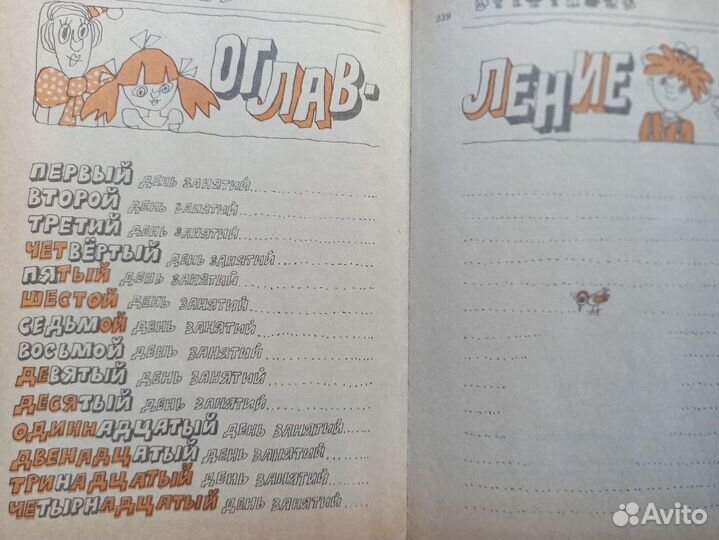 239
ОГЛАВ-
ЛЕНИЕ
ПЕРВЫЙ ДЕНЬ ЗАНЯТИЙ
ВТОРОЙ ДЕНЬ ЗАНЯТИЙ
ТРЕТИЙ ДЕНЬ ЗАНЯТИЙ
ЧЕТВЁРТЫЙ ДЕНЬ ЗАНЯТИЙ
ПЯТЫЙ ДЕНЬ ЗАНЯТИЙ
ШЕСТОЙ ДЕНЬ ЗАНЯТИЙ
СЕДЬМОЙ ДЕНЬ ЗАНЯТИЙ
ВОСЬМОЙ ДЕНЬ ЗАНЯТИЙ
ДЕВЯТЫЙ ДЕНЬ ЗАНЯТИЙ
ДЕСЯТЫЙ ДЕНЬ ЗАНЯТИЙ
ОДИННАДЦАТЫЙ ДЕНЬ ЗАНЯТИЙ
ДВЕНАДЦАТЫЙ ДЕНЬ ЗАНЯТИЙ
ТРИНАДЦАТЫЙ ДЕНЬ ЗАНЯТИЙ
ЧЕТЫРНАДЦАТЫЙ ДЕНЬ ЗАНЯТИЙ
Avito